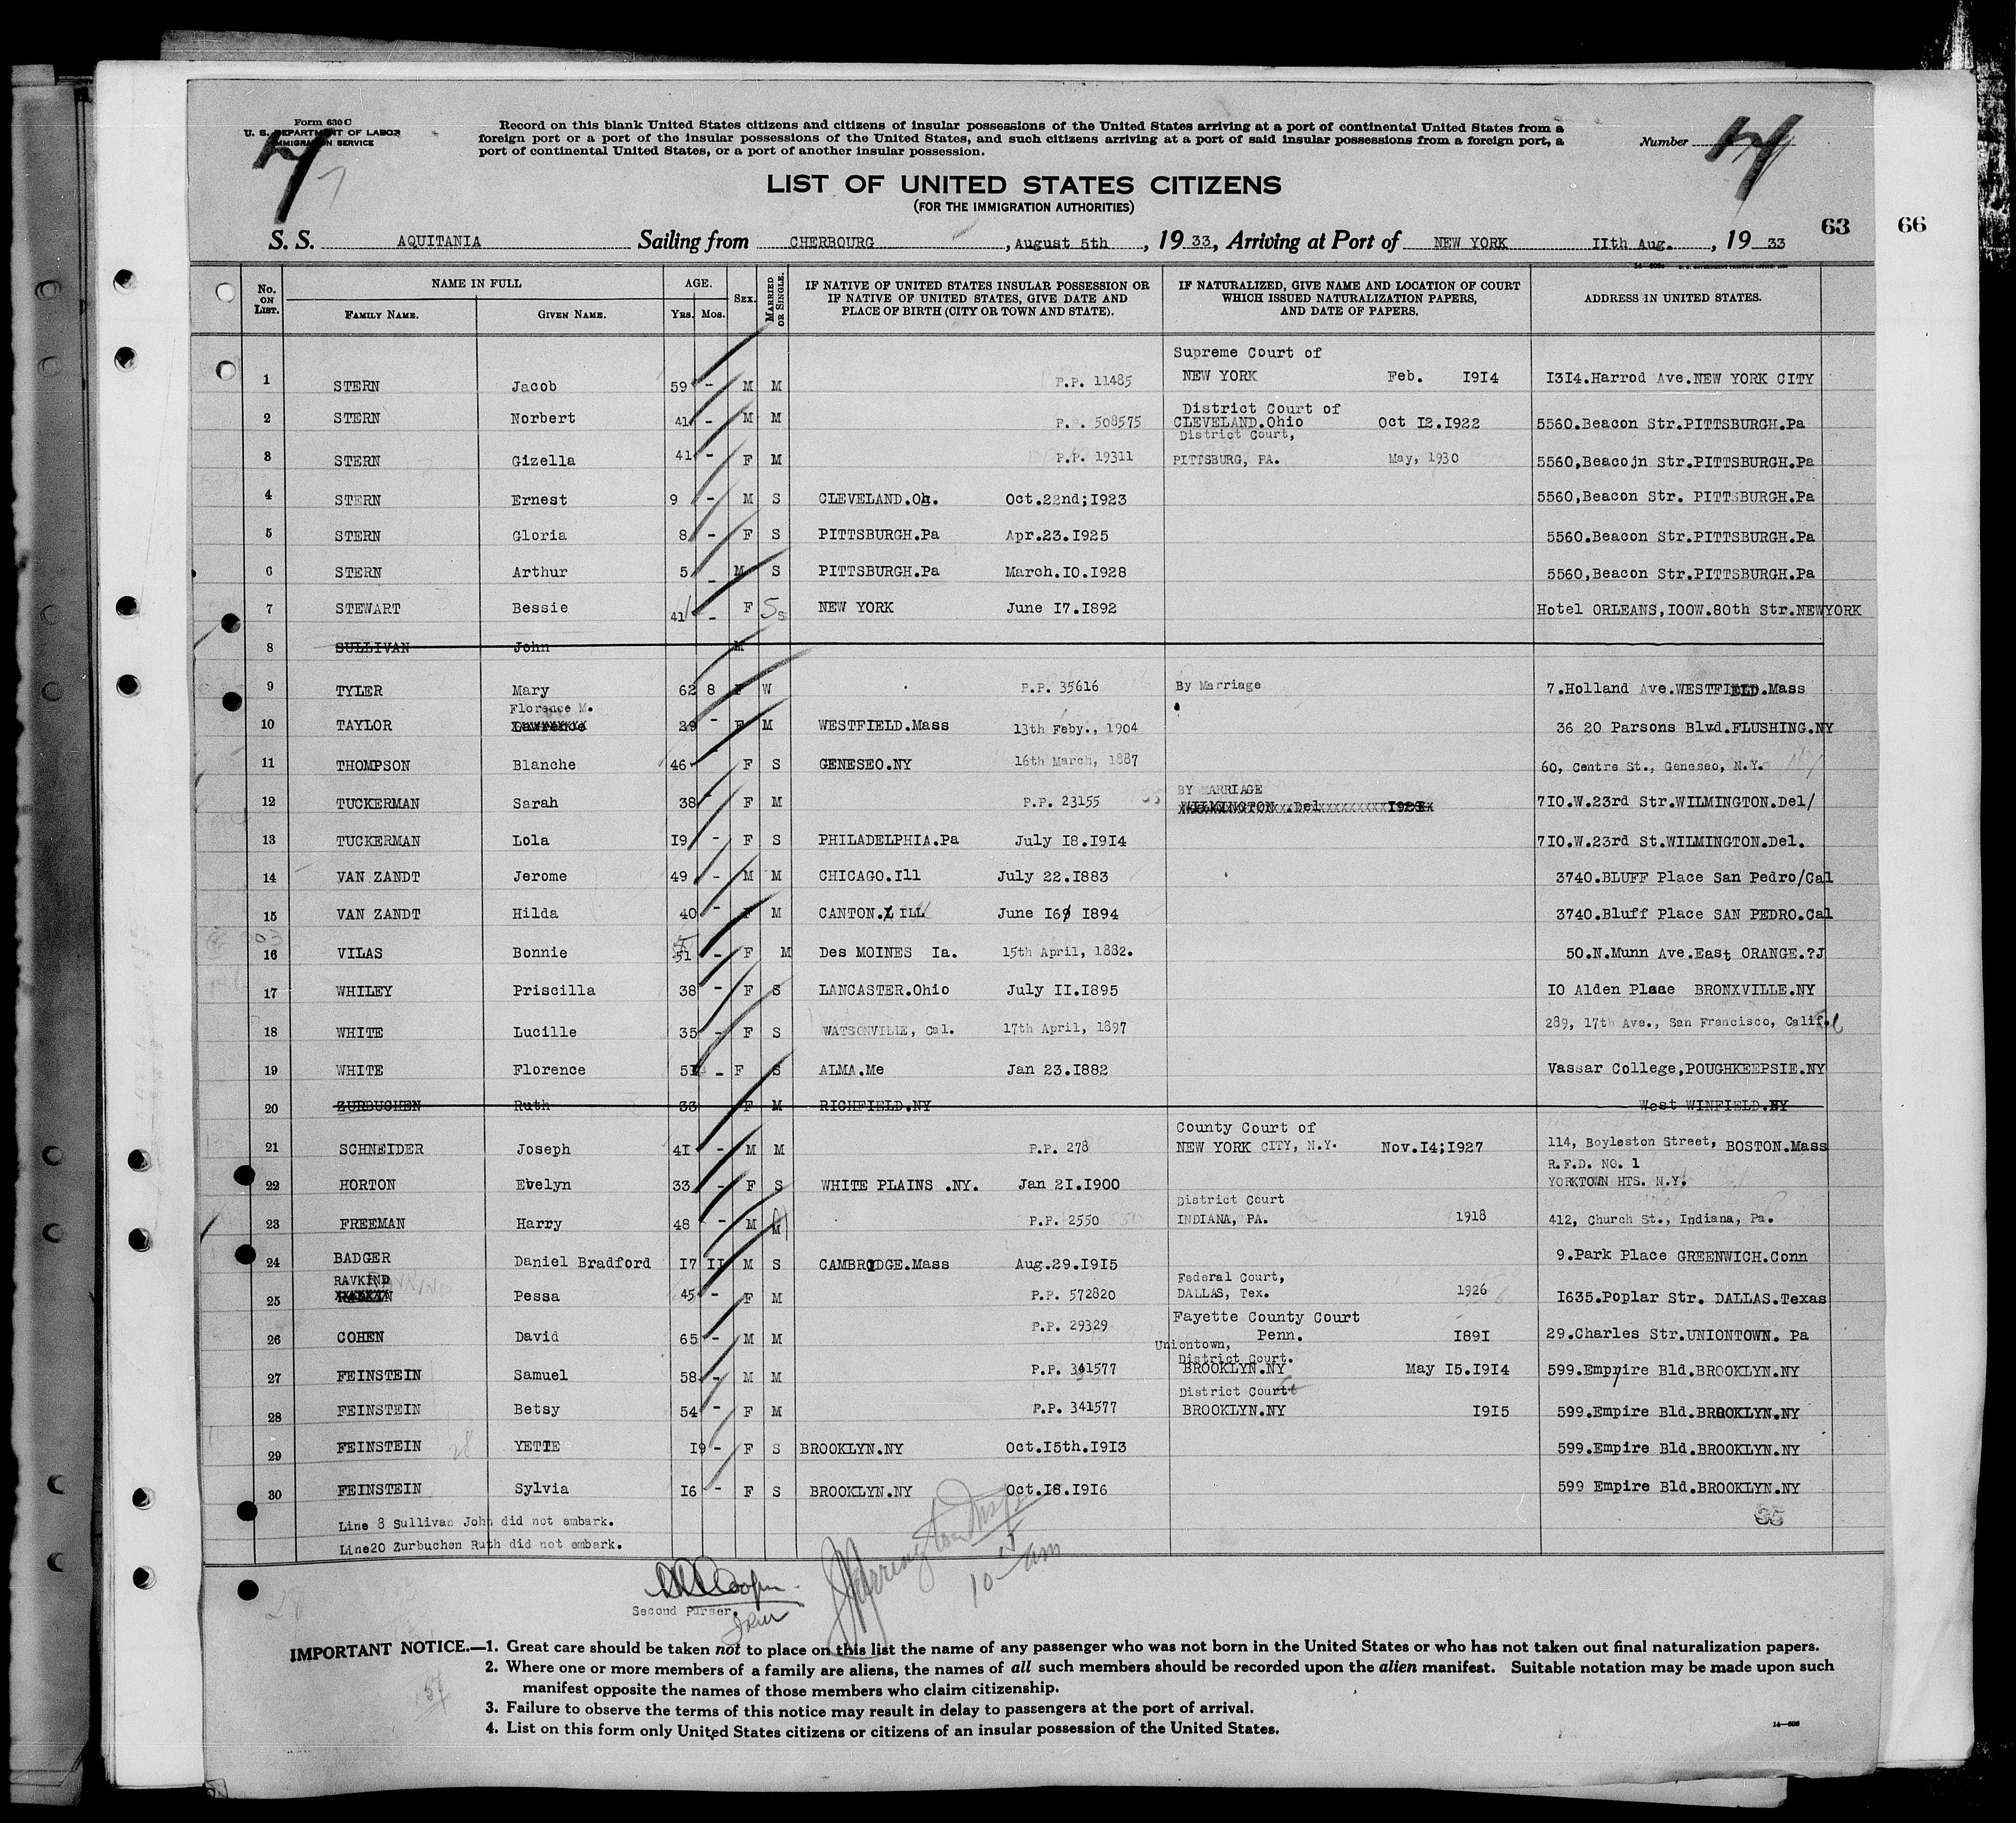 Form 630 C
U. S. DEPARTMENT OF LABOR
IMMIGRATION SERVICE
Record on this blank United States citizens and citizens of insular possessions of the United States arriving at a port of continental United States from a
foreign port or a port of the insular possessions of the United States, and such citizens arriving at a port of said insular possessions from a foreign port, a
port of continental United States, or a port of another insular possession.
Number
LIST OF UNITED STATES CITIZENS
(FOR THE IMMIGRATION AUTHORITIES)
63 66
S. S. AQUITANIA Sailing from CHERBOURG , August 5th , 19 33, Arriving at Port of NEW YORK IIth Aug. , 19 33
No. ON LIST. NAME IN FULL FAMILY NAME. GIVEN NAME. AGE. YRS. MOS. SEX. MARRIED OR SINGLE. IF NATIVE OF UNITED STATES INSULAR POSSESSION OR IF NATIVE OF UNITED STATES, GIVE DATE AND PLACE OF BIRTH (CITY OR TOWN AND STATE). IF NATURALIZED, GIVE NAME AND LOCATION OF COURT WHICH ISSUED NATURALIZATION PAPERS, AND DATE OF PAPERS. ADDRESS IN UNITED STATES.
Supreme Court of
1 STERN Jacob 59 - M M P.P. 11485 NEW YORK Feb. I9I4 I3I4.Harrod Ave.NEW YORK CITY
District Court of
2 STERN Norbert 41 - M M P.P. 508575 CLEVELAND.Ohio Oct I2.I922 5560.Beacon Str.PITTSBURGH.Pa
District Court,
3 STERN Gizella 41 - F M P.P. 19311 PITTSBURG, PA. May, 1930 5560,Beacojn Str.PITTSBURGH.Pa
4 STERN Ernest 9 - M S CLEVELAND.Oh. Oct.22nd;I923 5560,Beacon Str. PITTSBURGH.Pa
5 STERN Gloria 8 - F S PITTSBURGH.Pa Apr.23.I925 5560.Beacon Str.PITTSBURGH.Pa
6 STERN Arthur 5 - M S PITTSBURGH.Pa March.IO.I928 5560,Beacon Str.PITTSBURGH.Pa
7 STEWART Bessie 41 - F S NEW YORK June I7.I892 Hotel ORLEANS,IOOW.80th Str.NEWYORK
8 SULLIVAN John M
9 TYLER Mary 62 8 F W P.P. 35616 By Marriage 7.Holland Ave.WESTFIELD.Mass
Florence M.
10 TAYLOR Lawrence 29 - F M WESTFIELD.Mass 13th Feby., 1904 36 20 Parsons Blvd.FLUSHING.NY
11 THOMPSON Blanche 46 - F S GENESEO.NY 16th March, 1887 60, Centre St., Geneseo, N.Y.
BY MARRIAGE
12 TUCKERMAN Sarah 38 - F M P.P. 23155 WILMINGTON .Del 7IO.W.23rd Str.WILMINGTON.Del/
13 TUCKERMAN Lola I9 - F S PHILADELPHIA.Pa July I8.I9I4 7IO.W.23rd St.WILMINGTON.Del.
14 VAN ZANDT Jerome 49 - M M CHICAGO.Ill July 22.I883 3740.BLUFF Place San Pedro/Cal
15 VAN ZANDT Hilda 40 - F M CANTON. ILL June I6 I894 3740.Bluff Place SAN PEDRO.Cal
16 VILAS Bonnie 51 - F M Des MOINES Ia. 15th April, 1882. 50.N.Munn Ave.East ORANGE.?J
17 WHILEY Priscilla 38 - F S LANCASTER.Ohio July II.I895 IO Alden Plaae BRONXVILLE.NY
18 WHITE Lucille 35 - F S WATSONVILLE, Cal. 17th April, 1897 289, 17th Ave., San Francisco, Calif.
19 WHITE Florence 51 - F S ALMA.Me Jan 23.I882 Vassar College,POUGHKEEPSIE.NY
20 ZURBUCHEN Ruth 33 F M RICHFIELD.NY West WINFIELD.NY
County Court of
21 SCHNEIDER Joseph 4I - M M P.P. 278 NEW YORK CITY, N.Y. Nov.I4;I927 114, Boyleston Street, BOSTON.Mass
R.F.D. NO. 1
22 HORTON Evelyn 33 - F S WHITE PLAINS .NY. Jan 2I.I900 YORKTOWN HTS. N.Y.
District Court
23 FREEMAN Harry 48 - M M P.P. 2550 INDIANA, PA. 1918 412, Church St., Indiana, Pa.
24 BADGER Daniel Bradford I7 II M S CAMBRIDGE.Mass Aug.29.I9I5 9.Park Place GREENWICH.Conn
RAVKIND Federal Court,
25 Pessa 45 - F M P.P. 572820 DALLAS, Tex. 1926 I635.Poplar Str. DALLAS.Texas
Fayette County Court
26 COHEN David 65 - M M P.P. 29329 Uniontown, Penn. I89I 29.Charles Str.UNIONTOWN. Pa
District Court.
27 FEINSTEIN Samuel 58 - M M P.P. 341577 BROOKLYN.NY May I5.I9I4 599.Empire Bld.BROOKLYN.NY
District Court
28 FEINSTEIN Betsy 54 - F M P.P. 341577 BROOKLYN.NY I9I5 599.Empire Bld.BROOKLYN.NY
29 FEINSTEIN YETTE I9 - F S BROOKLYN.NY Oct.I5th.I9I3 599.Empire Bld.BROOKLYN.NY
30 FEINSTEIN Sylvia I6 - F S BROOKLYN.NY Oct.I8.I9I6 599 Empire Bld.BROOKLYN.NY
Line 8 Sullivan John did not embark.
Line20 Zurbuchen Ruth did not embark.
Second Purser.
10 am
28
IMPORTANT NOTICE.—1. Great care should be taken not to place on this list the name of any passenger who was not born in the United States or who has not taken out final naturalization papers.
2. Where one or more members of a family are aliens, the names of all such members should be recorded upon the alien manifest. Suitable notation may be made upon such
manifest opposite the names of those members who claim citizenship.
3. Failure to observe the terms of this notice may result in delay to passengers at the port of arrival.
4. List on this form only United States citizens or citizens of an insular possession of the United States.